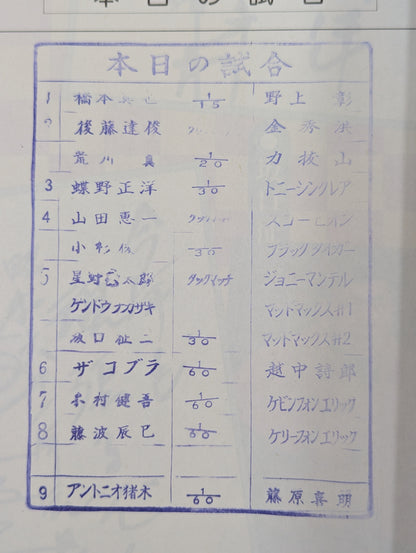 本日の試合
1 橋本真也 1/15 野上彰
2 後藤達俊 タッ 金秀洪
荒川真 1/20 力抜山
3 蝶野正洋 1/30 トニーシンクレア
4 山田恵一 タッグマッチ スコーピオン
小杉俊 30 ブラックタイガー
5 星野勘太郎 タッグマッチ ジョニーマンテル
ケンドウナガサキ マッドマックス#1
坂口征二 1/30 マッドマックス#2
6 ザコブラ 1/60 越中詩郎
7 木村健吾 1/60 ケビンフォンエリック
8 藤波辰巳 1/60 ケリーフォンエリック
9 アントニオ猪木 1/60 藤原喜明